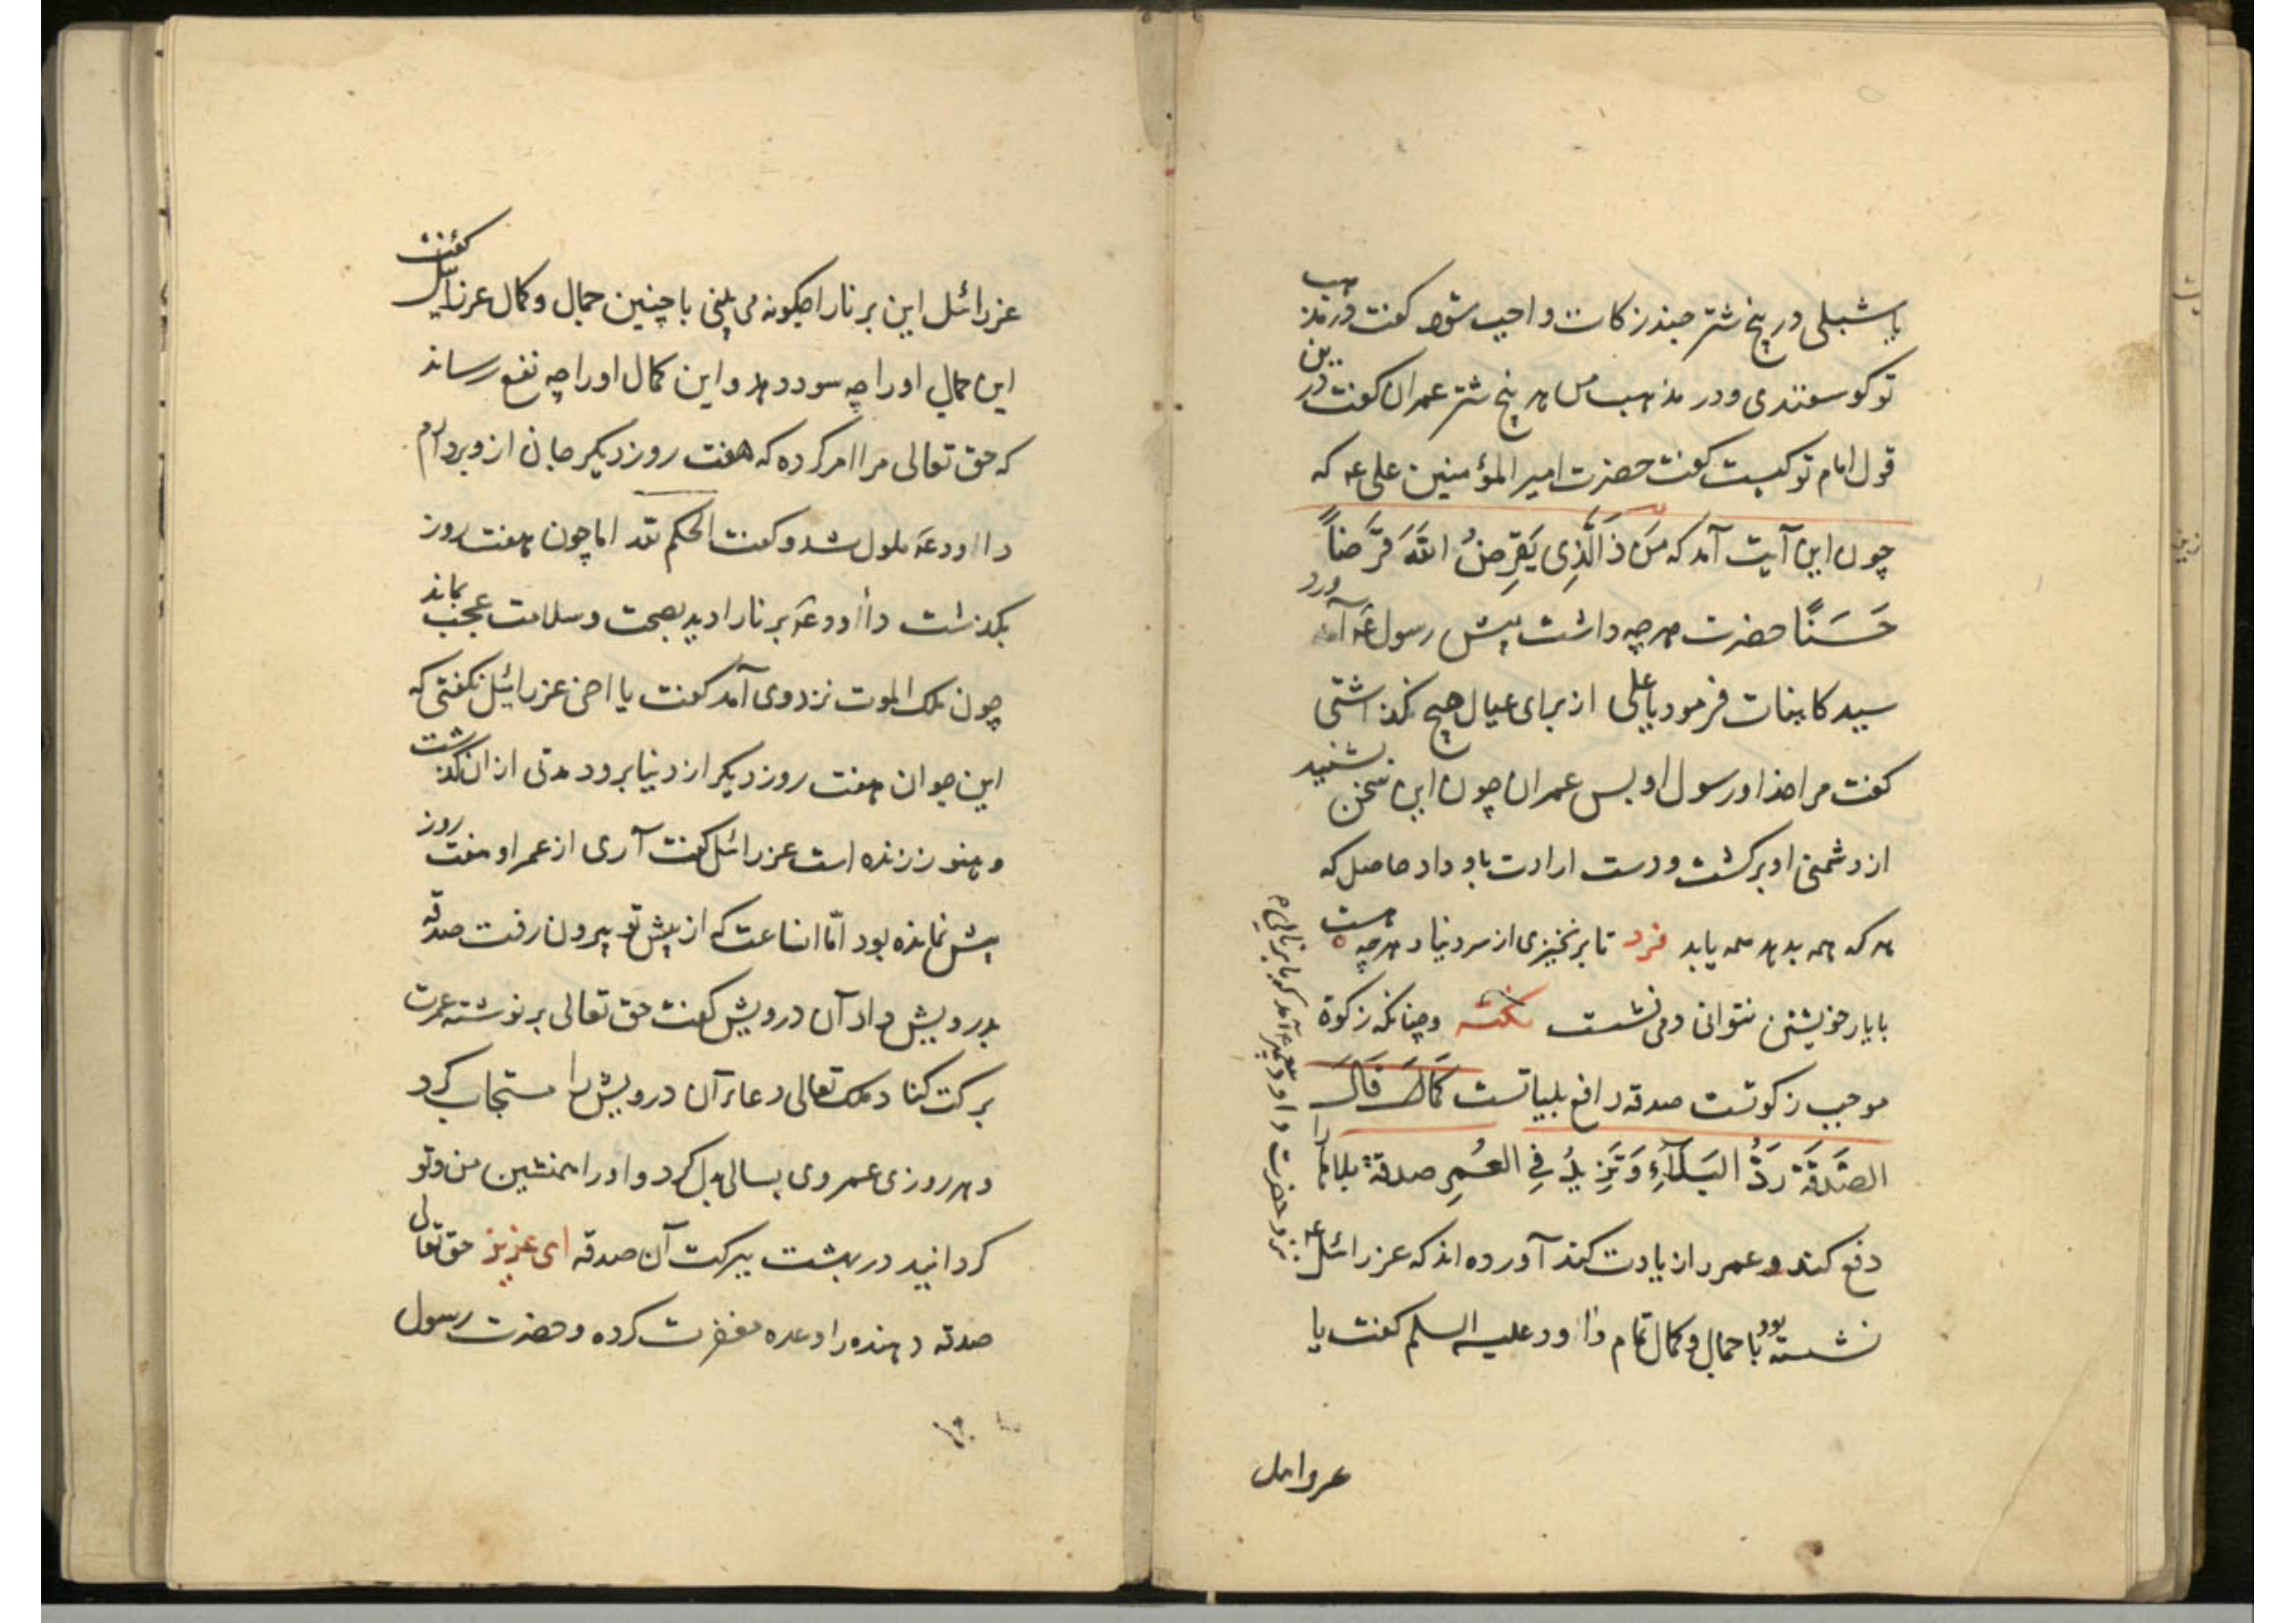 یا شبلی در پنج شتر چند زکات واجب شود گفت در مذهب
تو گوسفندی و در مذهب من هر پنج شتر عمران گفت درین
قول امام تو کیست گفت حضرت امیر المؤمنین علی عه که
چون این آیت آمد که مَن ذَالَّذِی یَقرِضُ اللهَ قَرَضاً
حَسَنًا حضرت هر چه داشت پیش رسول عَه آورد
سید کاینات فرمود یا علی از برای عیال هیچ نگذاشتی
گفت مرا خدا و رسول او بس عمران چون این سخن بشنید
از دشمنی او برگشت و دست ارادت باو داد حاصل که
هر که همه بدهد همه یابد فرد تا برنخیزی از سر دنیا و هر چه هست
با یار خویشتن نتوانی دمی نشست نکته و چنانکه زکوة
موجب زکوتست صدقه دافع بلیاتست کَمَا قَالَ
الصَّدَقَة رَدُّ البَلَآءِ وَ تَزِیدُ فِی العُمِر صدقه بلاها را
دفع کند و عمر را زیادت کند آورده اند که عزرائیل عه
نزد حضرت داود پیغمبر آمد که با برنائی
نشسته بود با جمال و کمال تمام داود علیه السلم گفت یا
عزرائیل
عزرائیل این برنا را چگونه می بینی با چنین جمال و کمال عزرائیل گفت
این جمال او را چه سود دهد و این کمال او را چه نفع رساند
که حق تعالی مرا امر کرده که هفت روز دیگر جان از وی بردارم
داود عَه ملول شد و گفت الحکم لله اما چون هفت روز
بگذشت داود عَه برنا را دید بصحت و سلامت عجب بماند
چون ملک الموت نزد وی آمد گفت یا اخی عزرائیل نگفتی که
این جوان هفت روز دیگر از دنیا برود مدتی از ان گذشت
و هنوز زنده است عزرائیل گفت آری از عمر او هفت روز
بیش نمانده بود امّا انساعت که از پیش تو بیرون رفت صدقه
بدرویش داد آن درویش گفت حق تعالی بر نوشته عمرت
برکت کناد ملک تعالی دعاء آن درویش را مستجاب کرد
و هر روزی عمر وی بسالی بدل کرد و او را همنشین من و تو
گردانید در بهشت ببرکت آن صدقه ای عزیز حق تعالی
صدقه دهنده را وعده مغفرت کرده و حضرت رسول